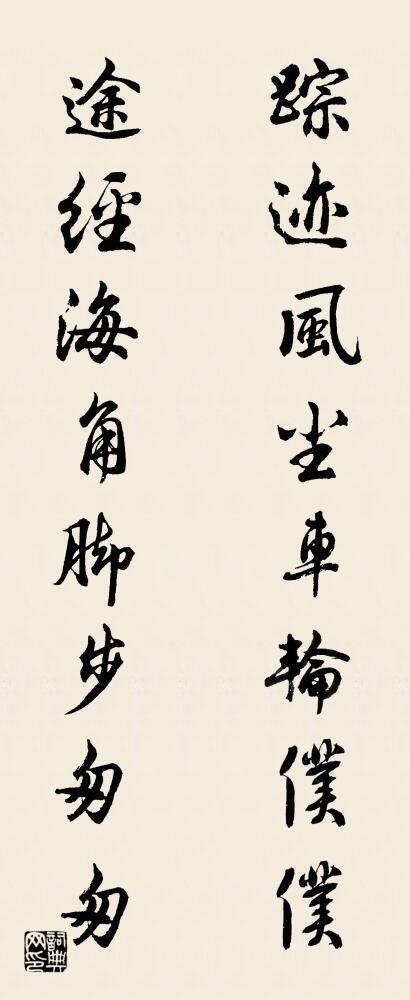 踪迹風尘車輪僕僕
途經海角脚步匆匆
詞典网印